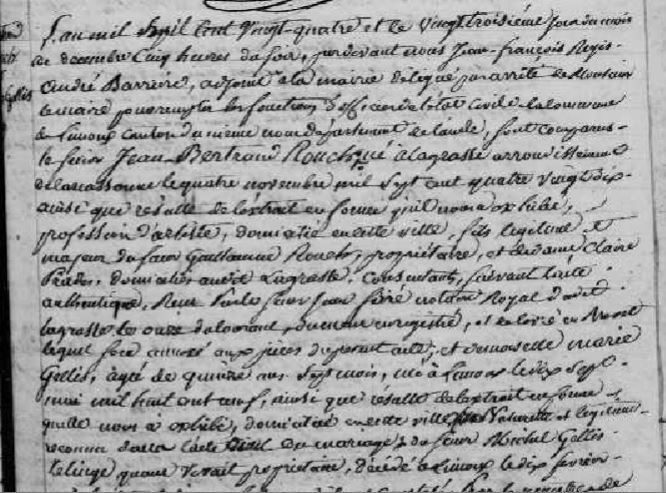 L'an mil huit cent vingt-quatre et le vingt troisième jour du mois
de decembre cinq heures du soir, pardevant nous Jean-françois Regis-
André Barrière, adjoint a la mairie délégué par arrêté de Monsieur
le maire pour remplir les fonctions d'officier de l'état civil de la commune
de Limoux canton du meme nom département de l'aude, sont comparus
le sieur Jean-Bertrand Rouch, né a lagrasse arrondissement
de carcassonne le quatre novembre mil sept cent quatre vingt dix-
ainsi que résulte de l'extrait en forme qu'il nous a exhibé,
profession d'artiste, domicilié en cette ville, fils légitime et
majeur du sieur Guillaume Rouch, propriétaire, et de dame Claire
domiciliés audit Lagrasse, consentants, suivant l'acte
authentique, sieur Jean notaire Royal dudit
lagrasse le onze du courant, duement enregistré, et en brevet
lequel sera annexé aux pièces du présent acte, et demoiselle marie
Gellis, agée de quinze ans sept mois, née a Limoux le dix sept
mai mil huit cent neuf, ainsi que résulte de l'extrait en forme
quelle nous a exhibé, domiciliée en cette ville, fille naturelle et
reconnue dans l'acte du mariage du sieur Michel Gellis
quand vivait propriétaire, décédé a Limoux le dix fevrier